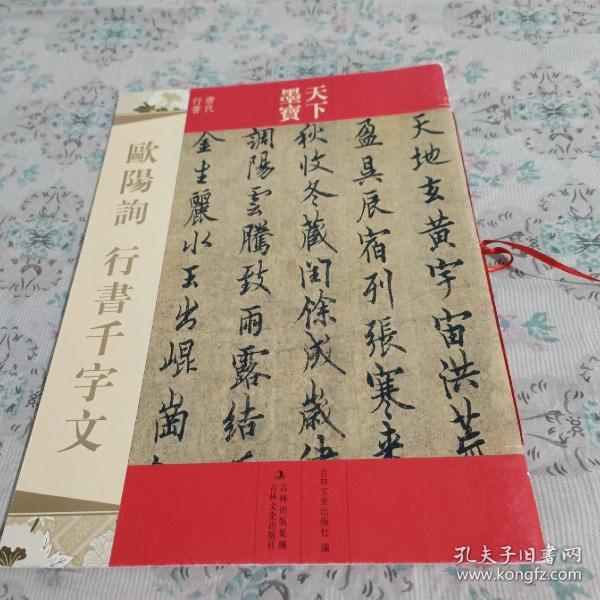 天下
墨寶
唐代
行書
歐陽詢 行書千字文
天地玄黃宇宙洪荒
盈昃辰宿列張寒來
秋收冬藏閏餘成歲律
調陽雲騰致雨露結
金生麗水玉出崐崗
吉林文史出版社 編
吉林出版集團
吉林文史出版社
孔夫子旧书网
www.kongfz.com